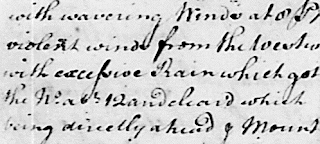 with wavering Winds at 8 P
violent winds from the West
with excessive Rain which got
the Wt. at 12 and cleard which
being directly ahead & Mount